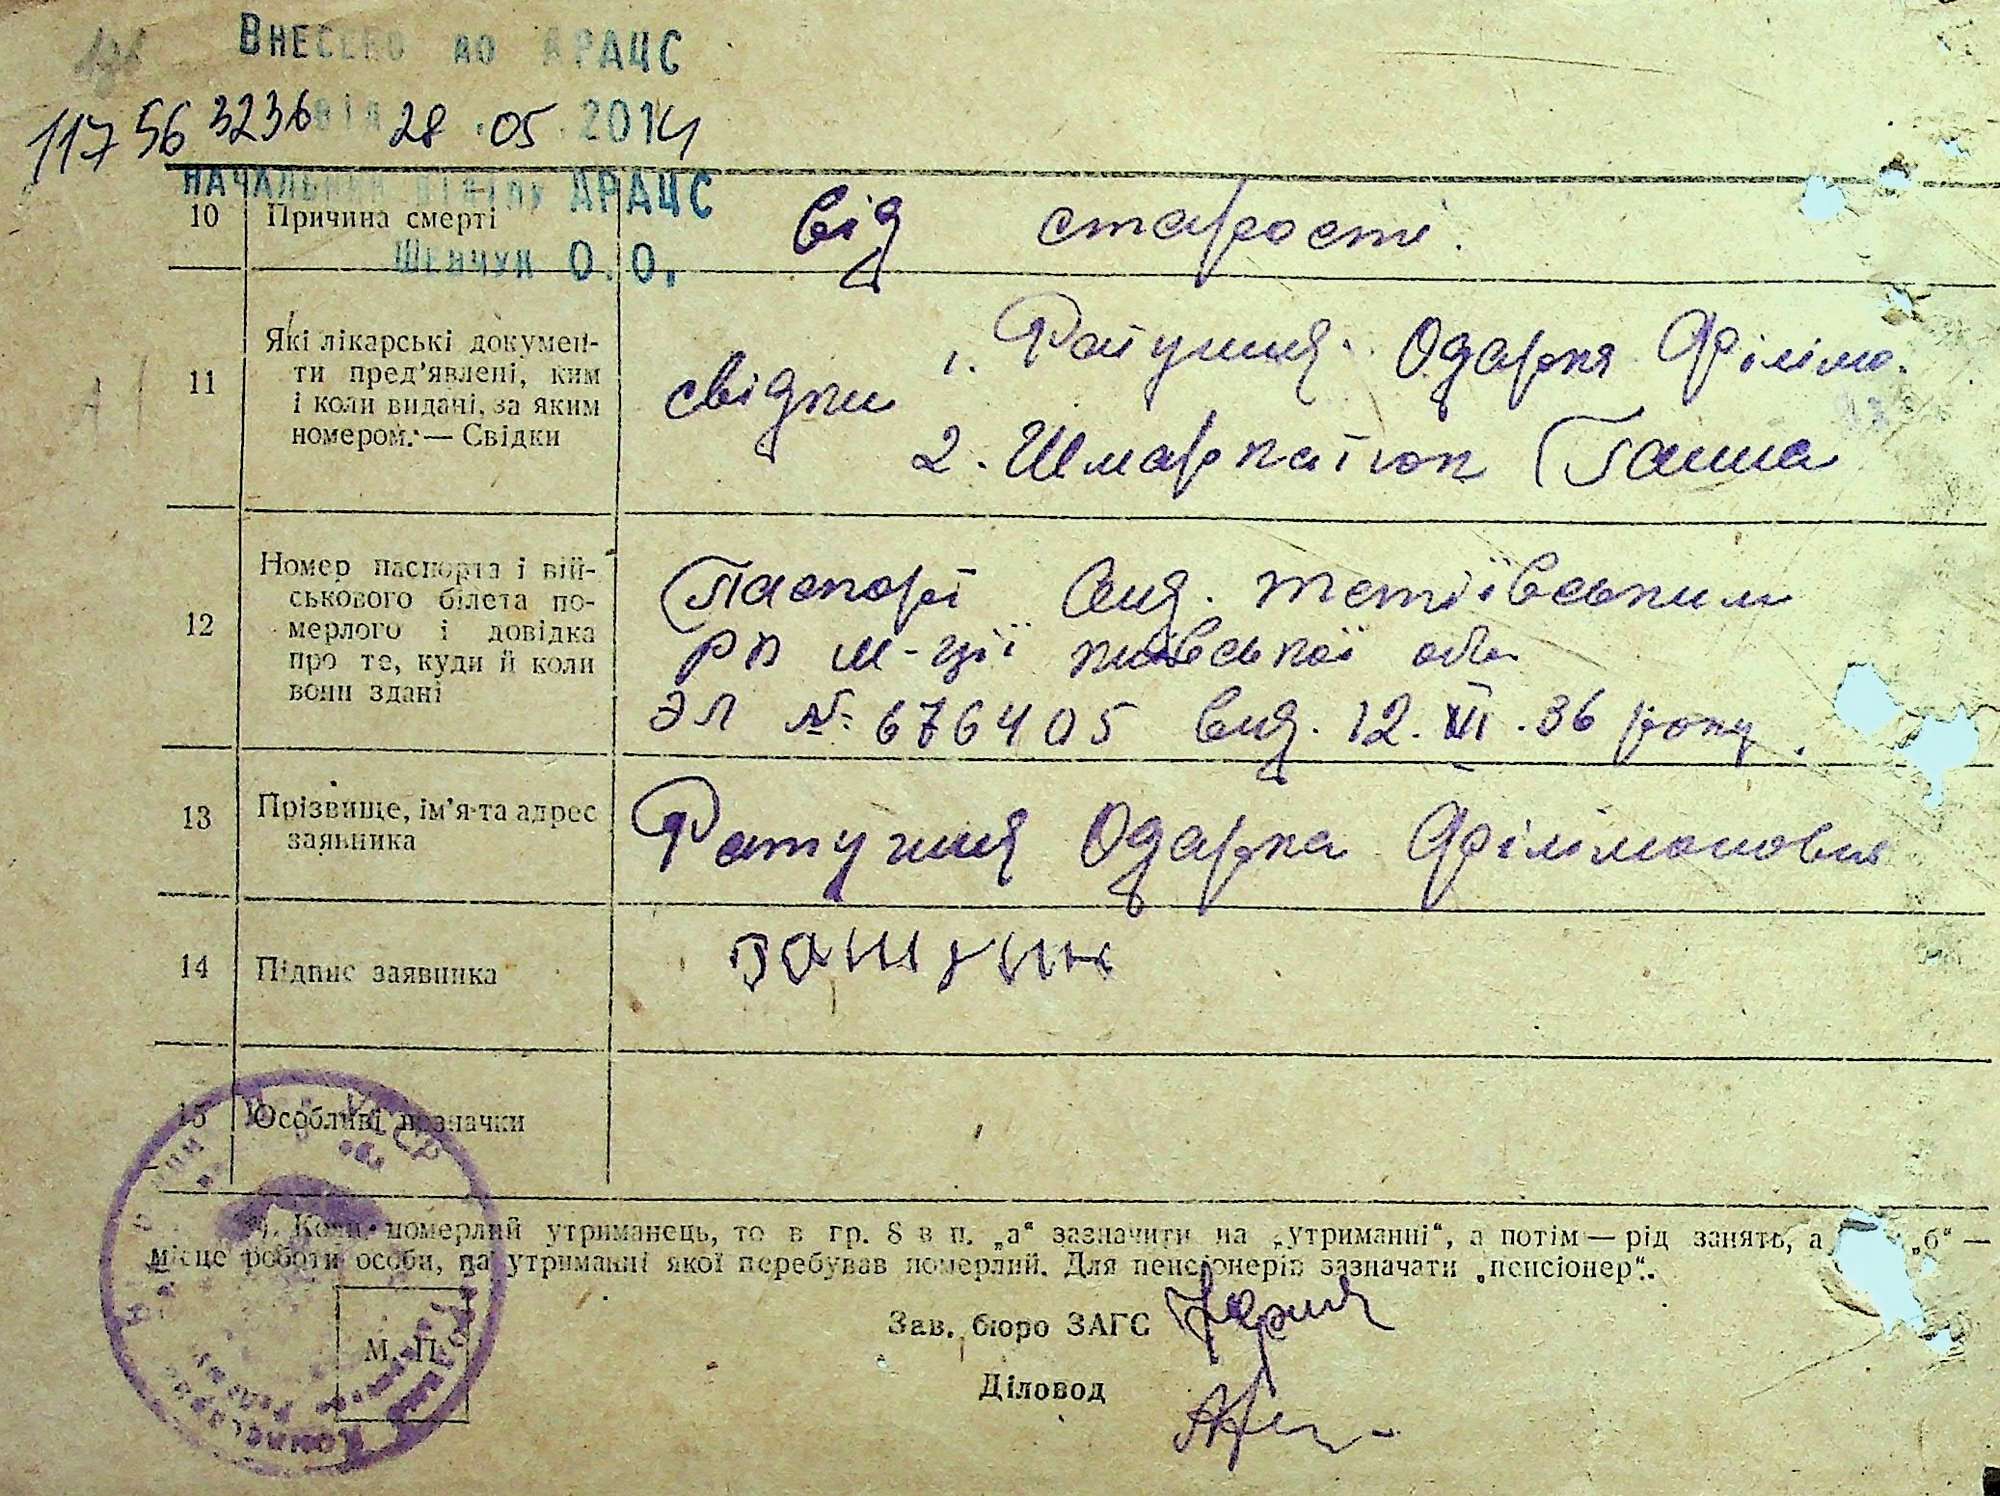 Внесено до АРАЦС
117 56 3236 від 28.05.2014
начальник відділу АРАЦС
Шевчук О.О.
10 Причина смерті від старости.
11 Які лікарські докумен-
ти пред'явлені, ким
і коли видані, за яким
номером. — Свідки
свідки 1. Ратушня Одарка Філімо.
2. Шмаркатюк Ганна
12 Номер паспорта і вій-
ськового білета по-
мерлого і довідка
про те, куди й коли
вони здані
Паспорт вид. Тетіївським
РВ м-ції київської обл
ЭЛ № 676405 вид. 12. року.
13 Прізвище, ім'я та адрес
заявника
Ратушня Одарка Філімоновня
14 Підпис заявника
15 Особливі позначки
*). Коли померлий утриманець, то в гр. 8 в п. „а“ зазначити на „утриманні“, а потім — рід занять, а „б“ —
місце роботи особи, на утриманні якої перебував померлий. Для пенсіонерів зазначати „пенсіонер“.
Зав. бюро ЗАГС
М. П.
Діловод